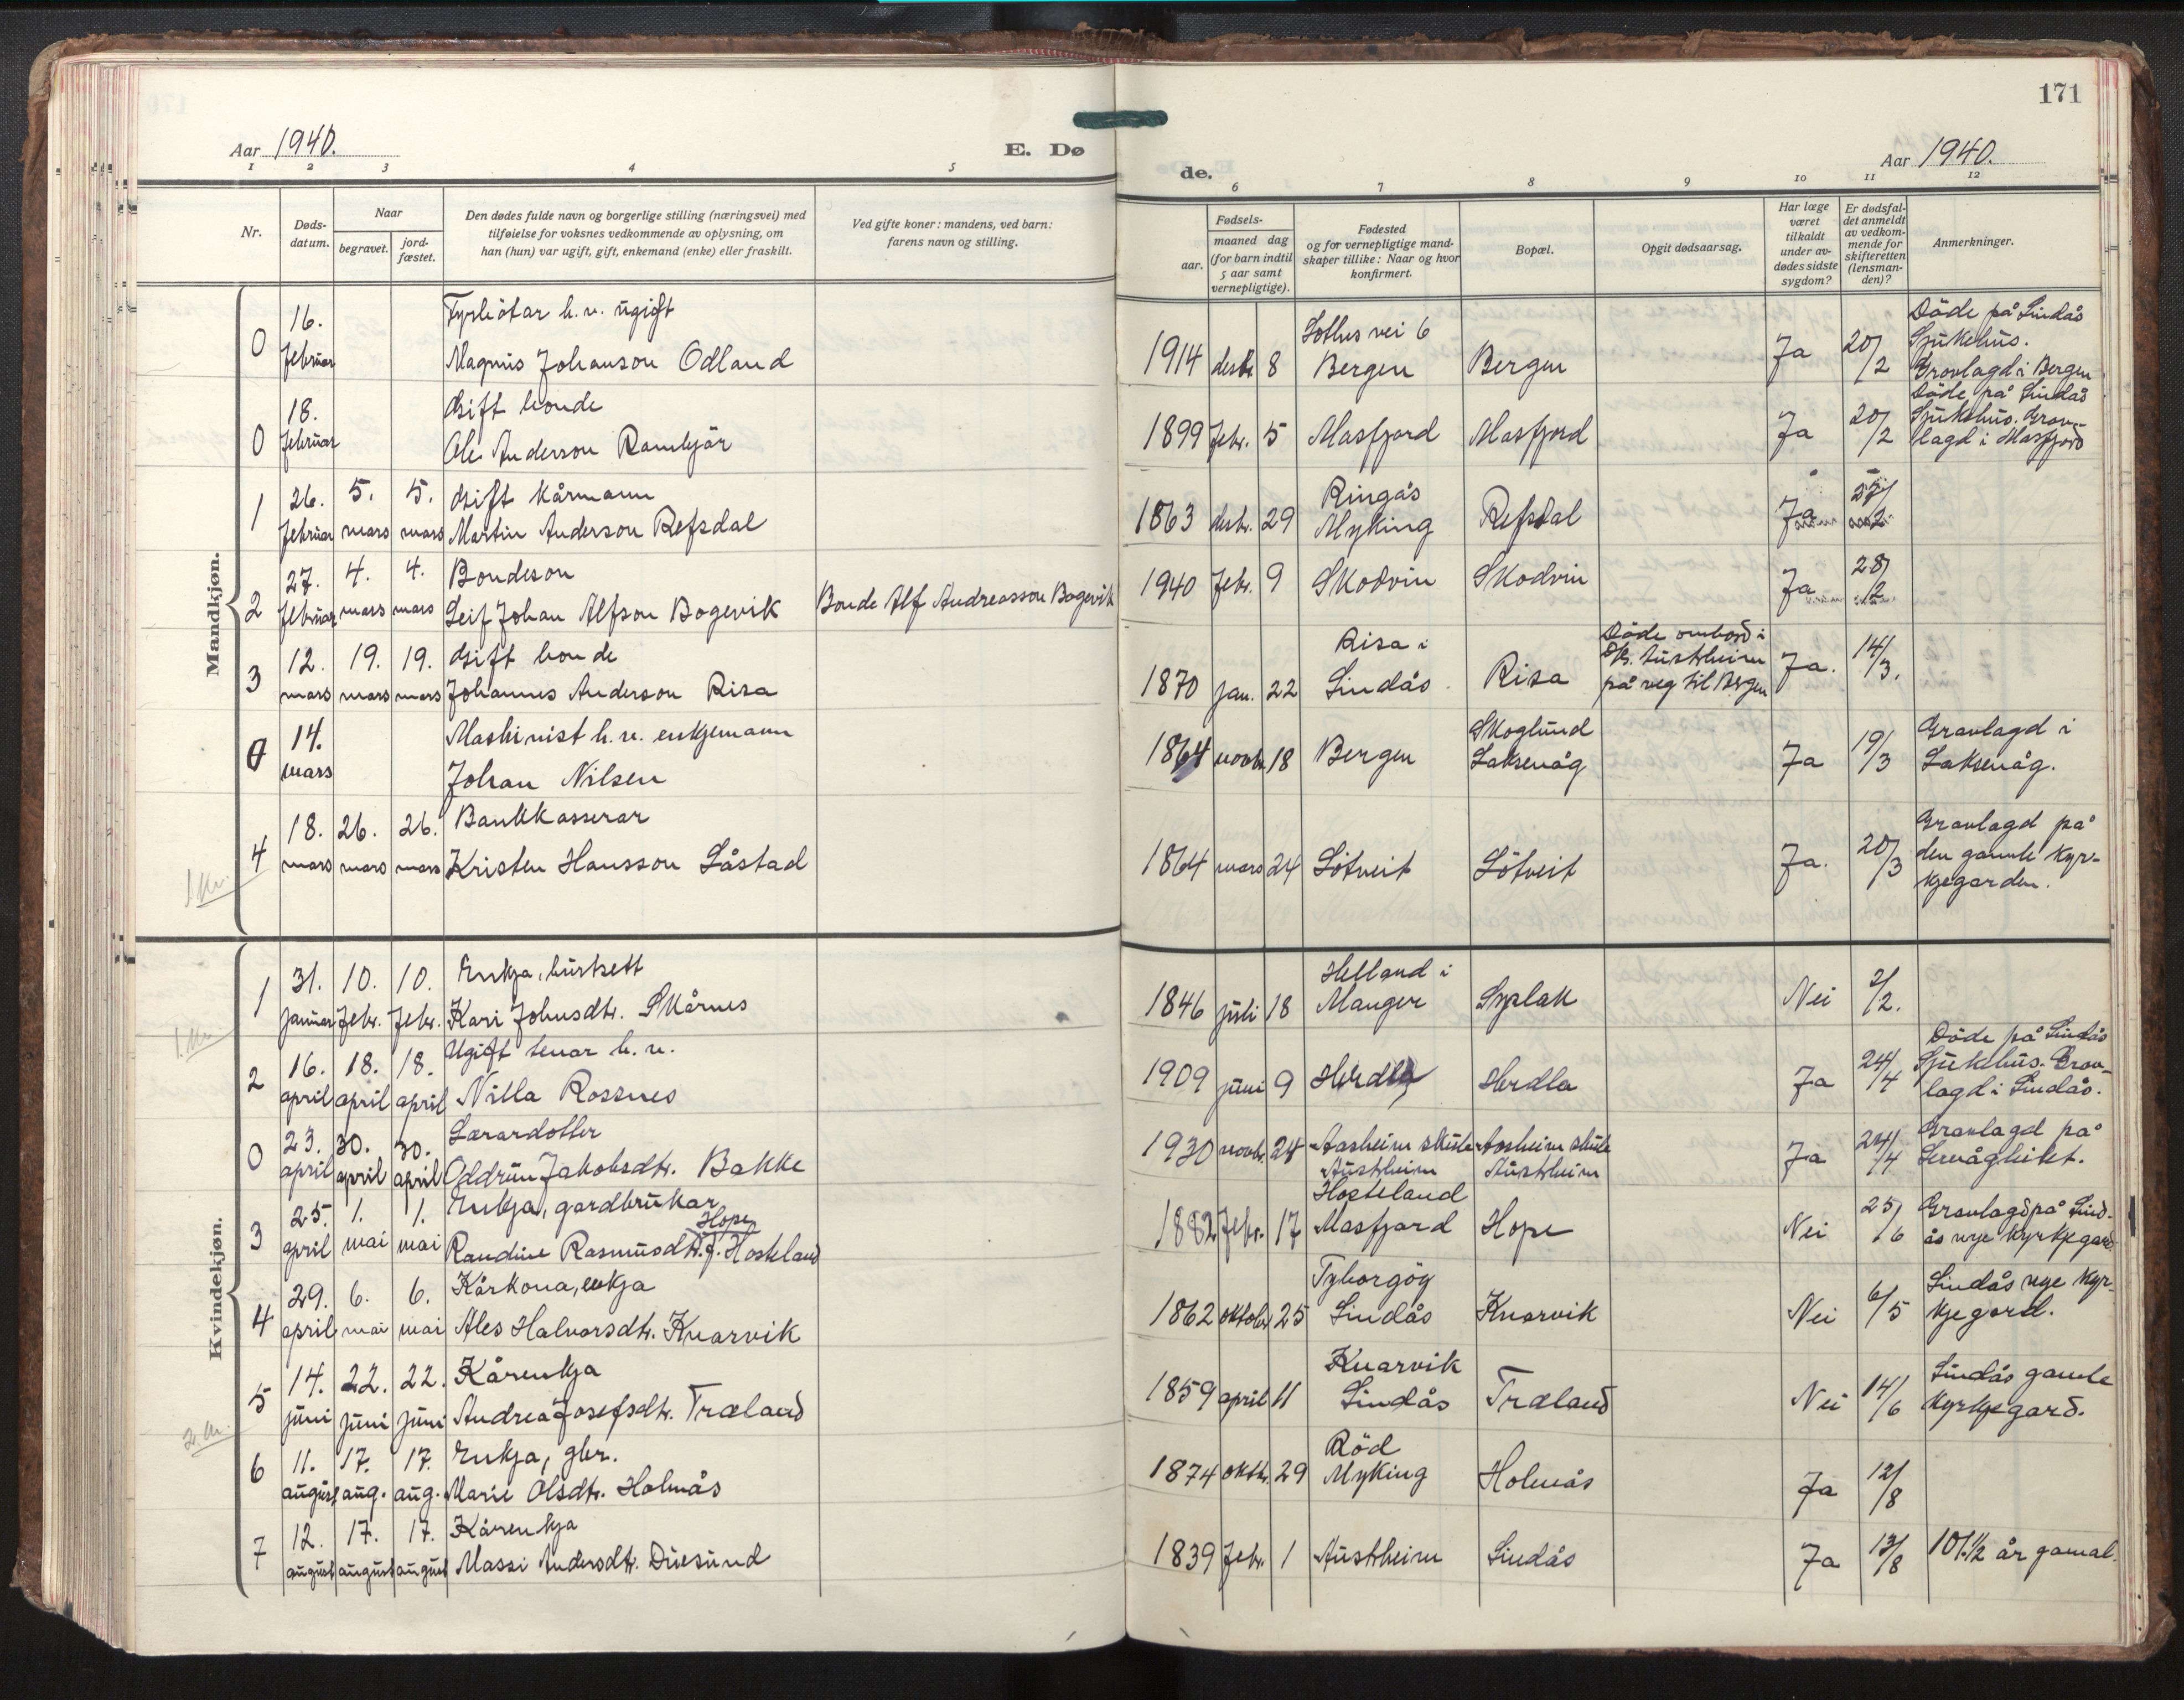 171
Aar 1940.
E. Dø
de.
Aar 1940.
1 2 3 4 5 6 7 8 9 10 11 12
Nr.
Døds-
datum.
Naar
begravet.
jord-
fæstet.
Den dødes fulde navn og borgerlige stilling (næringsvei) med
tilføielse for voksnes vedkommende av oplysning, om
han (hun) var ugift, gift, enkemand (enke) eller fraskilt.
Ved gifte koner: mandens, ved barn:
farens navn og stilling.
Fødsels-
aar.
maaned dag
(for barn indtil
5 aar samt
vernepligtige).
Fødested
og for vernepligtige mand-
skaper tillike: Naar og hvor
konfirmert.
Bopæl.
Opgit dødsaarsag.
Har læge
været
tilkaldt
under av-
dødes sidste
sygdom?
Er dødsfal-
det anmeldt
av vedkom-
mende for
skifteretten
(lensman-
den)?
Anmerkninger.
Mandkjøn.
0 16. februar Fyrbötar h.v. ugift
Magnus Johanson Odland
1914 desbr. 8 Sothus vei 6
Bergen Bergen Ja 20/2 Döde på Lindås
Sjukehus.
Gravlagd i Bergen
0 18. februar Gift bonde
Ole Anderson Rambjär
1899 febr. 5 Masfjord Masfjord Ja 20/2 Döde på Lindås
Sjukehus. Grav-
lagd i Masfjord
1 26. februar 5. mars 5. mars Gift kårmann
Martin Anderson Refsdal
1863 desbr. 29 Ringås
Myking Refsdal Ja
2 27. februar 4. mars 4. mars Bondeson
Leif Johan Alfson Bogevik Bonde Alf Andreasson Bogevik
1940 febr. 9 Skodvin Skodvin Ja 28/2
3 12. mars 19. mars 19. mars Gift bonde
Johannes Anderson Risa
1870 jan. 22 Risa i
Lindås Risa Döde ombord i
D/S. Austrheim
på veg til Bergen Ja. 14/3.
0 14. mars Maskinist h.v. enkjemann
Johan Nilsen
1864 novbr. 18 Bergen Skoglund
Laksevåg Ja 19/3 Gravlagd i
Laksevåg.
4 18. mars 26. mars 26. mars Bankkasserar
Kristen Hansson Låstad
1864 mars 24 Lötveit Lötveit Ja. 20/3 Gravlagd på
den gamle kyr-
kjegarden.
Kvindekjøn.
1 31. januar 10. febr. 10. febr. Enkja, hushett
Kari Johnsdtr. Skårnes
1846 juli 18 Helland i
Manger Syslak Nei 2/2.
2 16. april 18. april 18. april Ugift tenar h.v.
Nilla Rossnes
1909 juni 9 Herdla Herdla Ja 24/4 Döde på Lindås
Sjukehus. Grav-
lagd i Lindås.
0 23. april 30. april 30. april Lærardotter
Oddrun Jakobsdtr. Bakke
1930 novbr. 24 Aasheim skule
Austrheim Aasheim skule
Austrheim Ja 24/4 Gravlagd på
3 25. april 1. mai 1. mai Enkja, gardbrukar
Hope
Randine Rasmusdtr. f. Hosteland
1882 febr. 17 Hosteland
Masfjord Hope Nei 25/6 Gravlagd på Lind-
ås nye kyrkjegard.
4 29. april 6. mai 6. mai Kårkona, enkja
Ales Halvorsdtr. Knarvik
1862 oktobr 25 Tyborgög
Lindås Knarvik Nei 6/5 Lindås nye kyr-
kjegard.
5 14. juni 22. juni 22. juni Kårenkja
Andrea Josefsdtr. Træland
1859 april 11 Knarvik
Lindås Træland Nei 14/6 Lindås gamle
kyrkjegard.
6 11. august 17. aug. 17. aug. Enkja, gbr.
Marie Olsdtr. Holmås
1874 oktbr. 29 Röd
Myking Holmås Ja 12/8
7 12. august 17. august 17. august Kårenkja
Massi Andersdtr. Duesund
1839 febr. 1 Austrheim Lindås Ja 13/8 101½ år gamal.